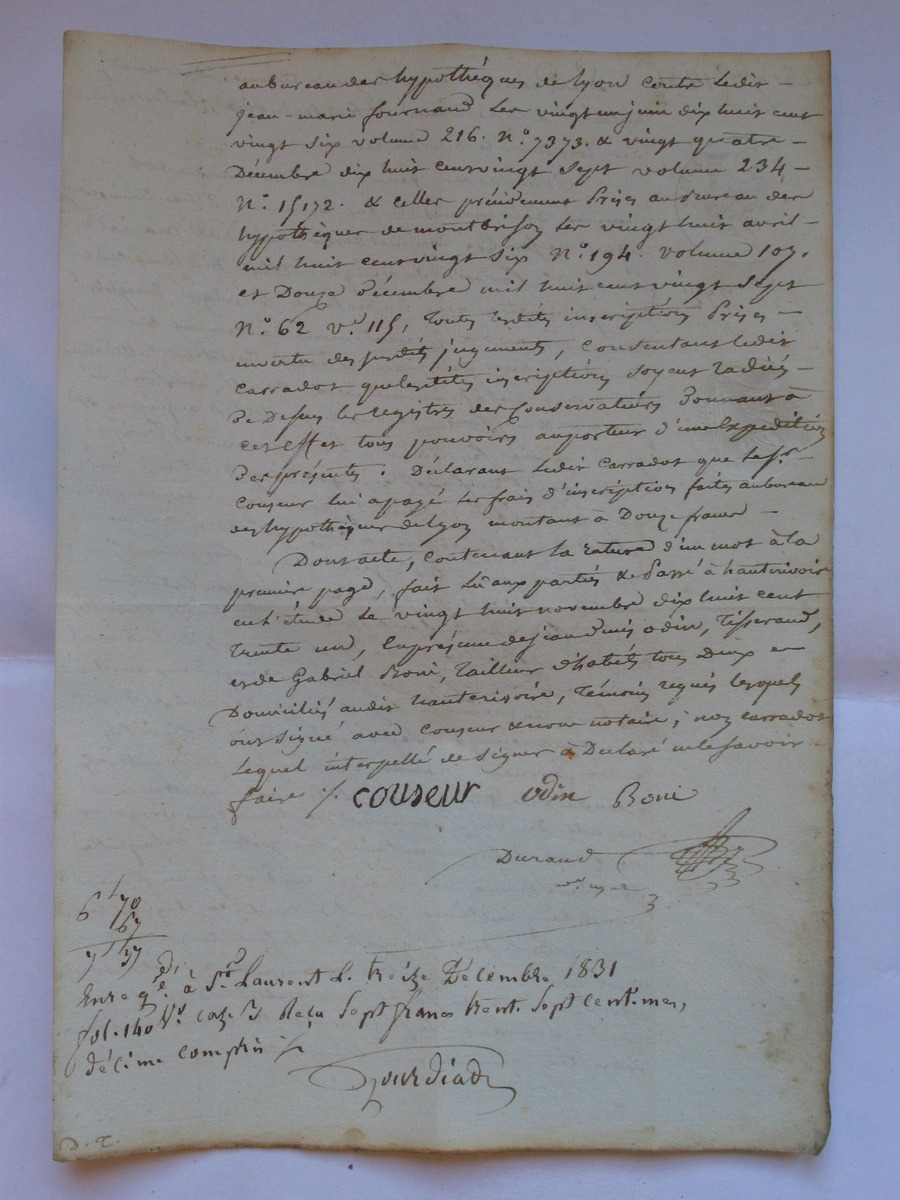 au bureau des hypothéques de lyon contre ledit
jean-marie fournand les vingt un juin dix huit cent
vingt six volume 216. N.o 7373. & vingt quatre
Décembre dix huit cent vingt sept volume 234
N.o 15172. & celles prises au bureau des
hypothéques de montbrison les vingt huit avril
mil huit cent vingt six N.o 194. volume 107.
et Douze décembre mil huit cent vingt sept
N.o 62 v.e 115, toutes lesdites inscriptions Prises
en vertu des susdits jugements, Consentant ledit
Carradot que lesdites inscriptions soyent radiées
De Dessus les registres des Conservateurs Donnant à
cet effet tous pouvoirs au porteur d'une Expedition
Des présentes. Déclarant ledit Carradot que le sr.
Couseur lui a payé les frais d'inscription faites au bureau
des hypothéques de Lyon montant à Douze francs
Dont acte, Contenant la rature d'un mot à la
premiere page, fait lu aux parties & Passé à hauterivoire
en l'étude le vingt huit novembre dix huit cent
trente un, En présence de jean denis odin, Tisserand,
et de Gabriel Boni, tailleur d'habits tous Deux
Domiciliés audit hauterivoire, témoins requis lesquels
ont signé avec Couseur & nous notaire; non carradot
Lequel interpellé de signer à Déclaré ne le savoir
faire ./. couseur odin Boni
Durand
n.re royal
6 f 70
67
7 f 37
Enregé. à St. Laurent le treize Décembre 1831
fol. 140 Vo. case 3 Recu Sept francs trent. sept Cent.mes,
décime compris
Jourdiad
D. T.